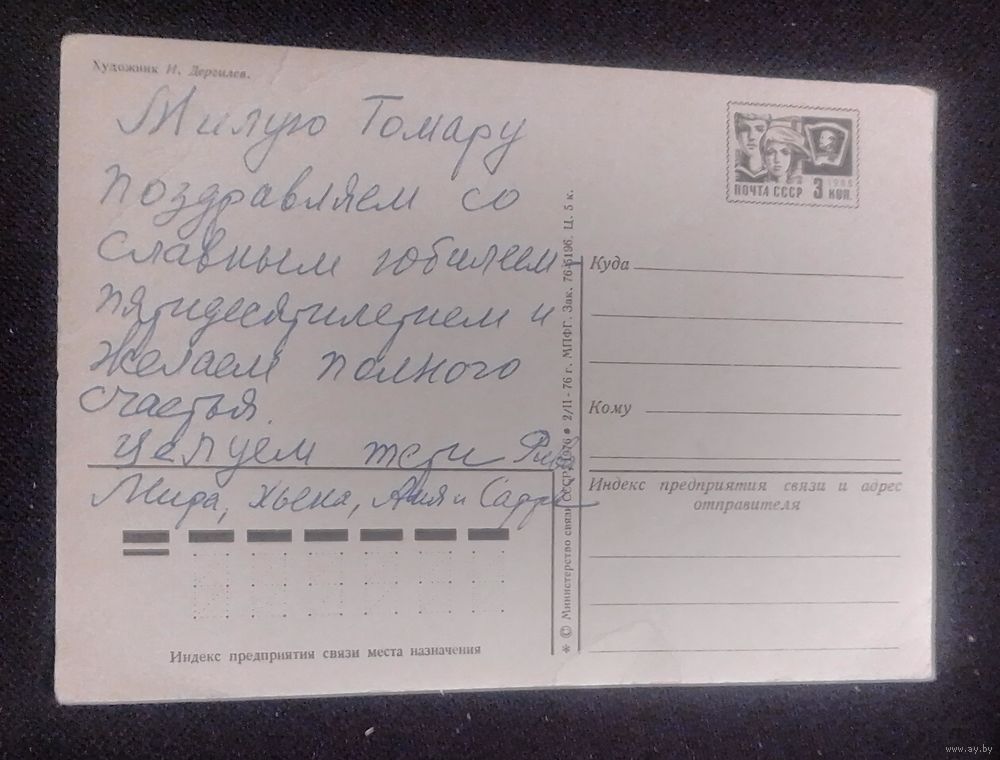 Художник И. Дергилев.
Милую Томару
поздравляем со
славным юбилеем-
пятидесятилетием и
желаем полного
счастья.
Целуем тети Рива
Мира, Хьена, Аня и
Индекс предприятия связи места назначения
* © Министерство связи СССР, 1976 ● 2/II-76 г. МПФГ. Зак. 76-5196. Ц. 5 к.
ПОЧТА СССР 3 КОП.
1966
Куда
Кому
Индекс предприятия связи и адрес
отправителя
www.ay.by